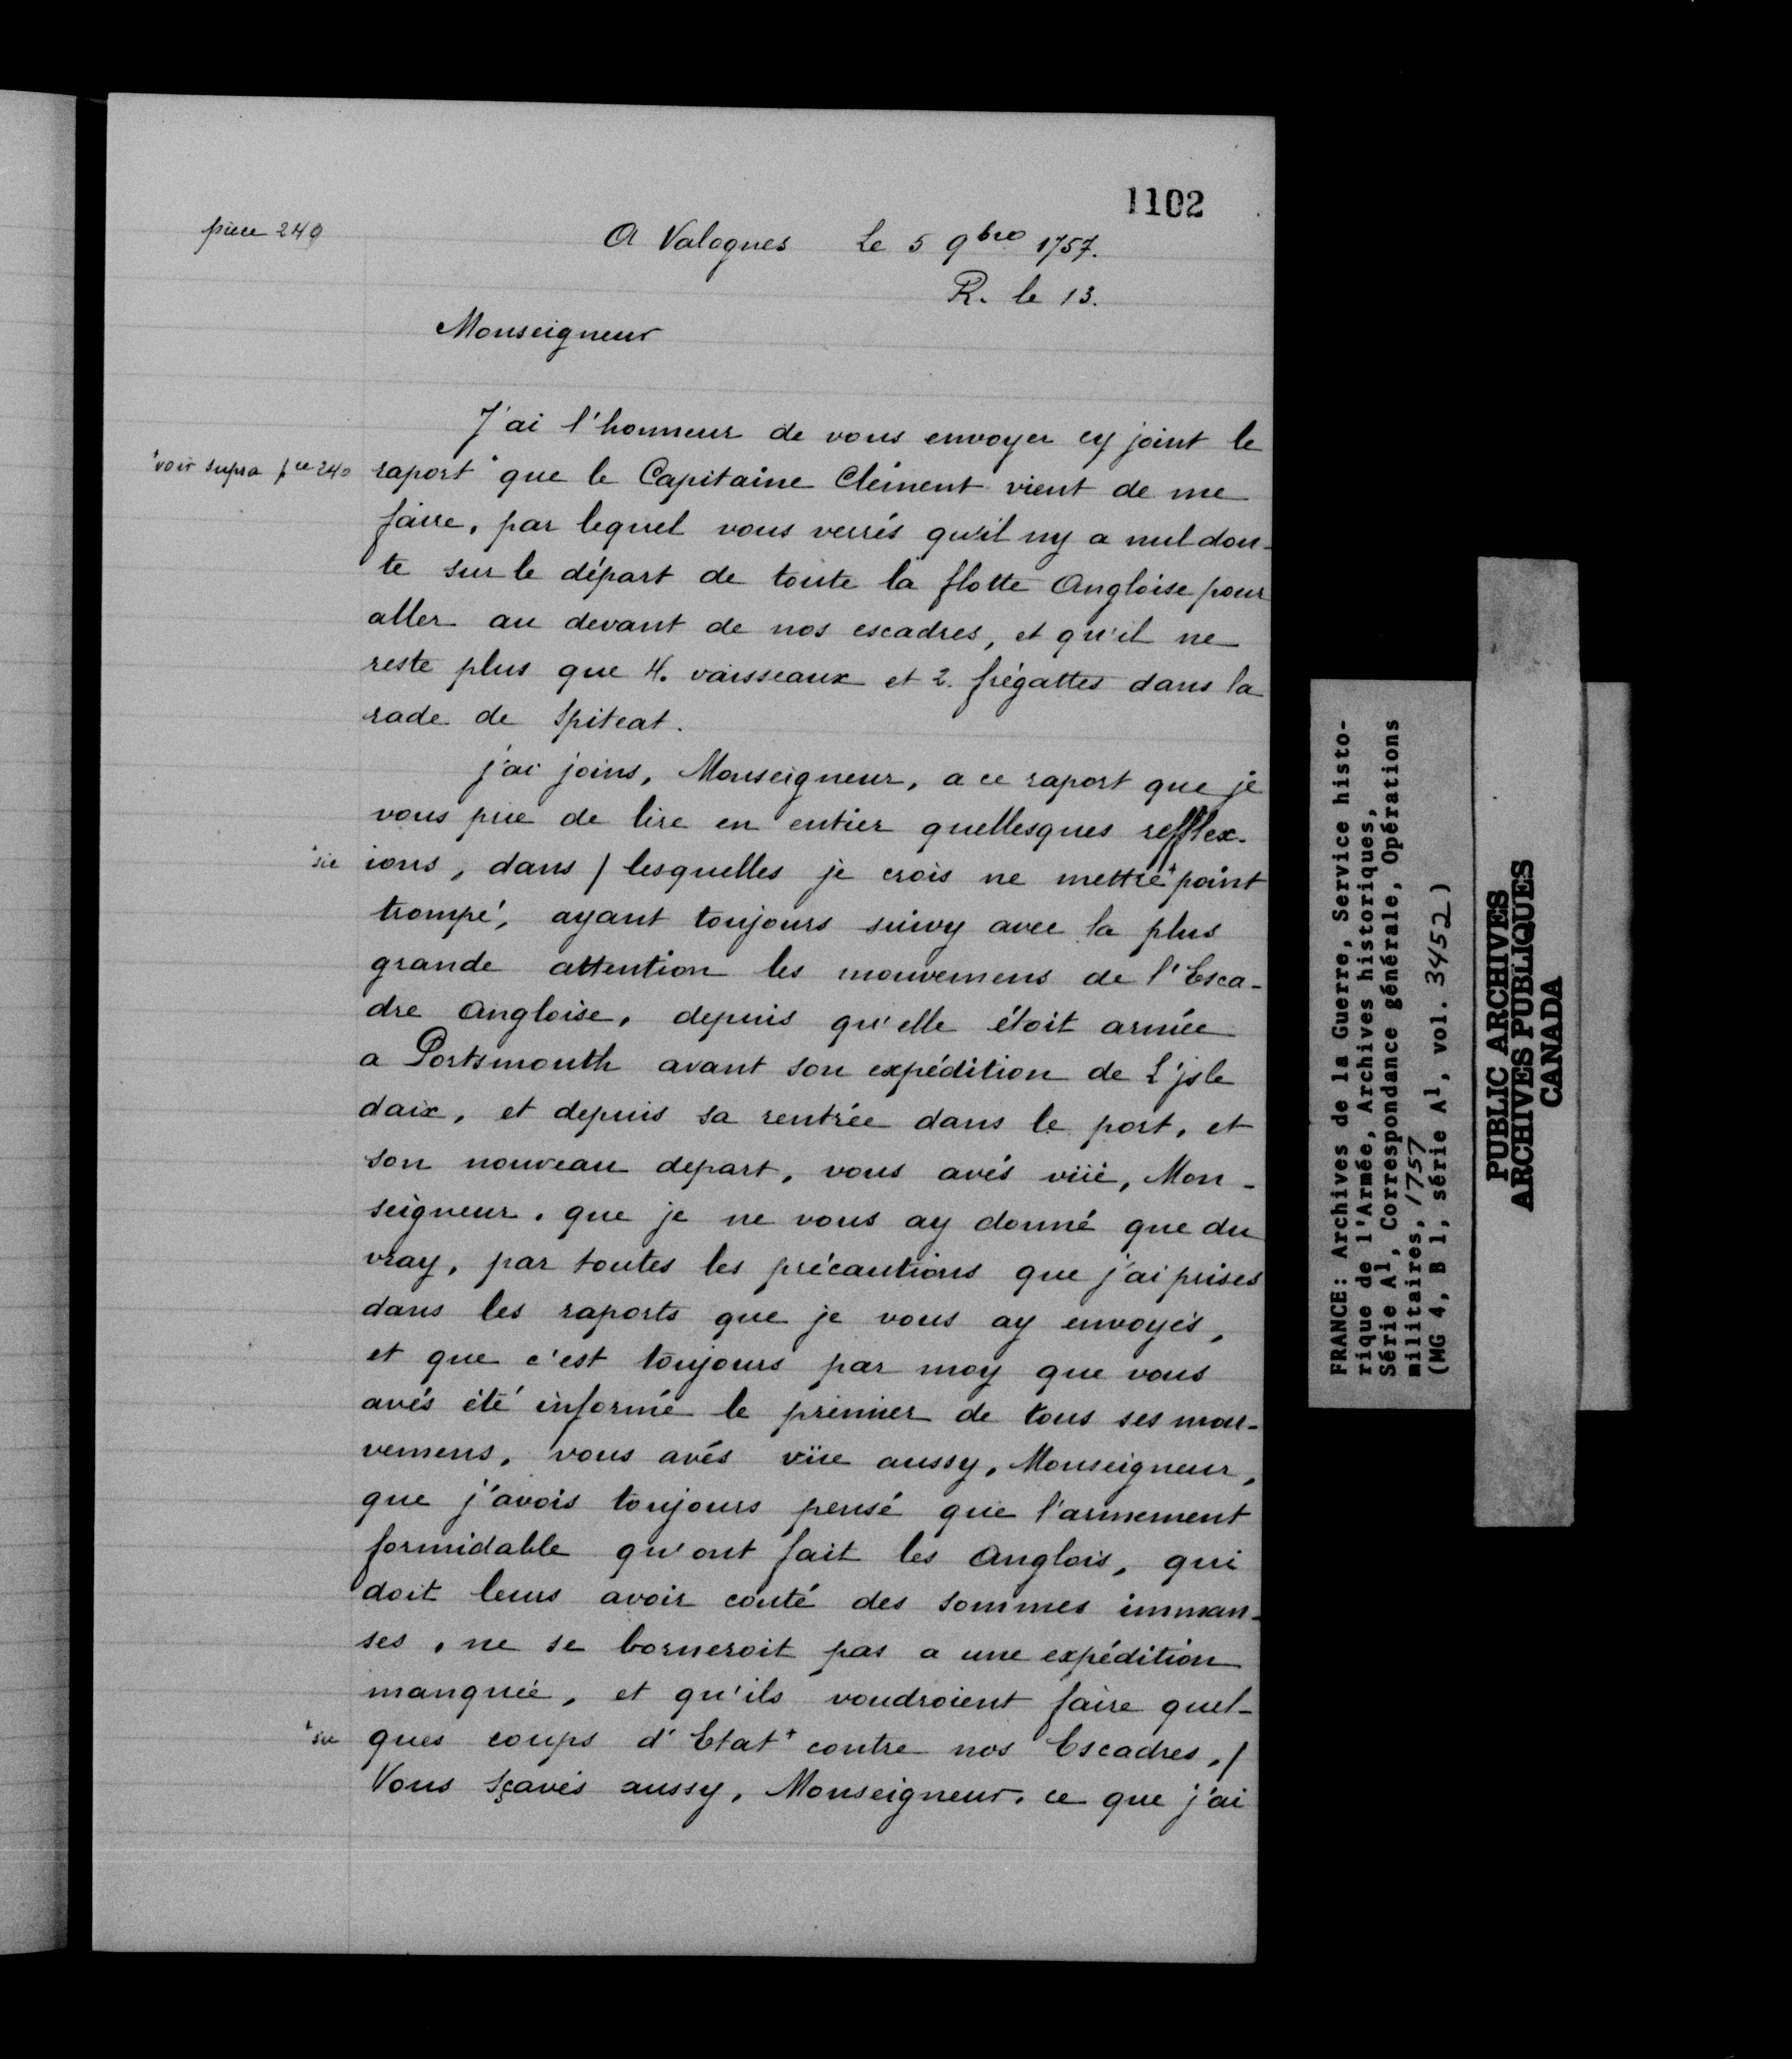 1102
pièce 249
A Valognes Le 5 9bre 1757.
R. le 13.
Monseigneur
J'ai l'honneur de vous envoyer cy joint le
+voir supra pce 240
raport+ que le Capitaine Clément vient de me
faire, par lequel vous verrés qu'il ny a nul dou-
te sur le départ de toute la flotte Angloise pour
aller au devant de nos escadres, et qu'il ne
reste plus que 4. vaisseaux et 2. frégattes dans la
rade de Spiteat.
j'ai joins, Monseigneur, a ce raport que je
vous prie de lire en entier quellesques refflex-
+sic
ions, dans / lesquelles je crois ne mettre+ point
trompé, ayant toujours suivy avec la plus
grande attention les mouvemens de l'Esca-
dre Angloise, depuis qu'elle étoit armée
a Portsmouth avant son expédition de L'jsle
daix, et depuis sa rentrée dans le port, et
son nouveau depart, vous avés vüe, Mon-
seigneur, que je ne vous ay donné que du
vray, par toutes les précautions que j'ai prises
dans les raports que je vous ay envoyés,
et que c'est toujours par moy que vous
avés été informé le premier de tous ses mou-
vemens, vous avés vüe aussy, Monseigneur,
que j'avois toujours pensé que l'armement
formidable qu'ont fait les Anglois, qui
doit leurs avoir couté des sommes imman-
ses, ne se borneroit pas a une expédition
manquée, et qu'ils voudroient faire quel-
+sic
ques coups d'Etat+ contre nos Escadres, /
Vous sçavés aussy, Monseigneur, ce que j'ai
FRANCE: Archives de la Guerre, Service histo-
rique de l'Armée, Archives historiques,
Série A1, Correspondance générale, Opérations
militaires, 1757
(MG 4, B 1, série A1, vol. 3452)
PUBLIC ARCHIVES
ARCHIVES PUBLIQUES
CANADA